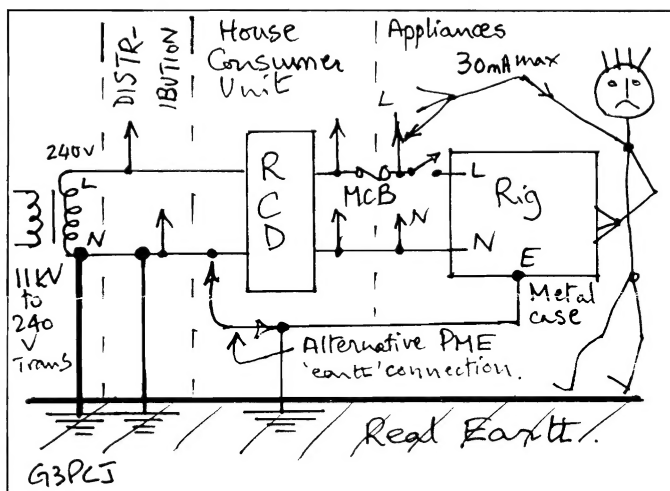 DISTR-
IBUTION
House
Consumer
Unit
Appliances
30mA max
L
240V
L
N
11KV
to
240
V
Trans
R
C
D
MCB
N
L
N
Rig
E
Metal
case
Alternative PME
'earth' connection.
Real Earth.
G3PCJ